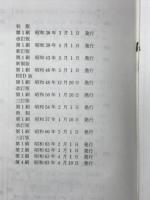 初 版
第1刷 昭和38年3月1日 発行
改訂版
第1刷 昭和39年3月1日 発行
新訂版
第1刷 昭和 年3月1日 発行
新製版
第1刷 昭和46年3月1日 発行
RED版
第1刷 昭和48年12月20日 発行
改訂版
第1刷 昭和 年12月20日 発行
三訂版
第1刷 昭和54年2月3日 発行
新版
第1刷 昭和57年10月10日 発行
改訂版
第1刷 昭和60年2月1日 発行
三訂版
第1刷 昭和63年2月1日 発行
第2刷 昭和63年3月1日 発行
第3刷 昭和63年4月1日 発行
第4刷 昭和63年4月10日 発行